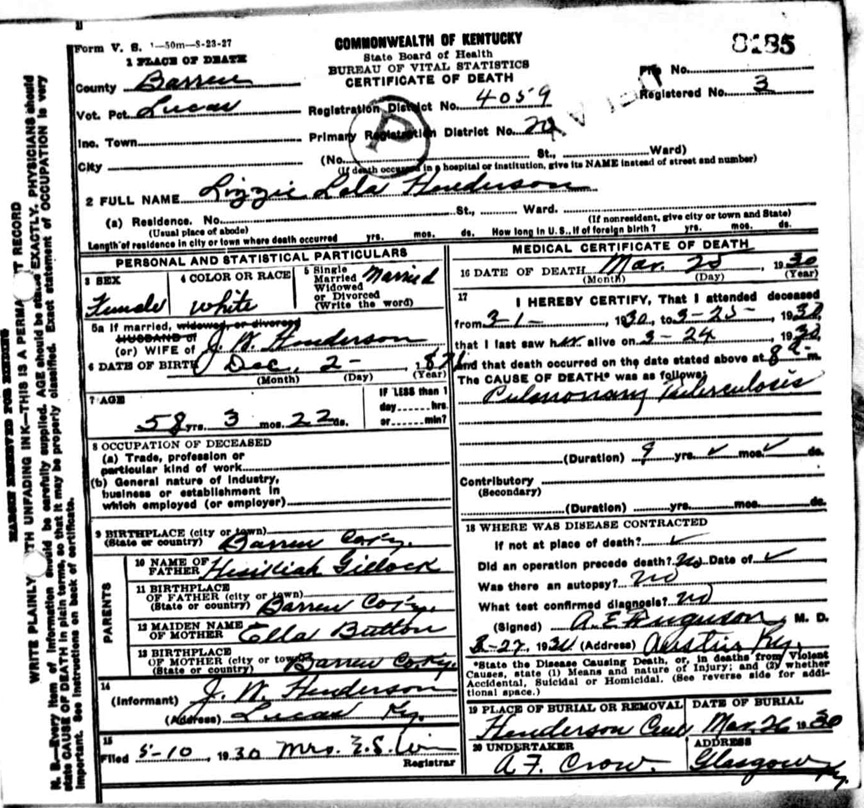 Form V. S. 1—50m—8-23-27
COMMONWEALTH OF KENTUCKY
State Board of Health
BUREAU OF VITAL STATISTICS
CERTIFICATE OF DEATH
8185
File No.
Registered No. 3
1 PLACE OF DEATH
County Barren
Vot. Pct. Lucas
Inc. Town
City
Registration District No. 4059
Primary Registration District No. 20
P
(No. St., Ward)
(If death occurred in a hospital or institution, give its NAME instead of street and number)
2 FULL NAME Lizzie Lola Henderson
(a) Residence. No. St., Ward.
(Usual place of abode) (If nonresident, give city or town and State)
Length of residence in city or town where death occurred yrs. mos. ds. How long in U. S., if of foreign birth? yrs. mos. ds.
PERSONAL AND STATISTICAL PARTICULARS
3 SEX
Female
4 COLOR OR RACE
White
5 Single
Married
Widowed
or Divorced
(Write the word)
Married
5a If married, widowed, or divorced
HUSBAND of
(or) WIFE of J. W. Henderson
6 DATE OF BIRTH Dec. 2-
(Month) (Day) (Year)
7 AGE
58 yrs. 3 mos. 22 ds.
IF LESS than 1
day ...... hrs.
or ...... min?
8 OCCUPATION OF DECEASED
(a) Trade, profession or
particular kind of work
(b) General nature of industry,
business or establishment in
which employed (or employer)
9 BIRTHPLACE (city or town)
(State or country) Barren Co Ky.
PARENTS
10 NAME OF
FATHER Hesikiah Gillock
11 BIRTHPLACE
OF FATHER (city or town)
(State or country) Barren Co Ky.
12 MAIDEN NAME
OF MOTHER Ella Button
13 BIRTHPLACE
OF MOTHER (city or town)
(State or country) Barren Co Ky.
14
(Informant) J. W. Henderson
(Address) Lucas Ky.
15
Filed 5-10, 1930 Mrs. E. S.
Registrar
MEDICAL CERTIFICATE OF DEATH
16 DATE OF DEATH Mar. 25 1930
(Month) (Day) (Year)
17
I HEREBY CERTIFY, That I attended deceased
from 3-1-, 1930, to 3-25-, 1930
that I last saw her alive on 3-24, 1930
and that death occurred on the date stated above at 8 a m.
The CAUSE OF DEATH* was as follows:
Pulmonary Tuberculosis
(Duration) 9 yrs. ✓ mos. ✓ ds.
Contributory
(Secondary)
(Duration) yrs. mos. ds.
18 WHERE WAS DISEASE CONTRACTED
If not at place of death? ✓
Did an operation precede death? No Date of ✓
Was there an autopsy? No
What test confirmed diagnosis? No
(Signed) A. E. Ferguson, M. D.
(Address) Austin Ky.
*State the Disease Causing Death, or, in deaths from Violent
Causes, state (1) Means and nature of Injury; and (2) whether
Accidental, Suicidal or Homicidal. (See reverse side for addi-
tional space.)
19 PLACE OF BURIAL OR REMOVAL
Henderson Cem
DATE OF BURIAL
Mar. 26 1930
20 UNDERTAKER
A. F. Crow.
ADDRESS
Glasgow Ky.
MARGIN RESERVED FOR BINDING
WRITE PLAINLY WITH UNFADING INK—THIS IS A PERMANENT RECORD
N. B.—Every item of information should be carefully supplied. AGE should be stated EXACTLY. PHYSICIANS should
state CAUSE OF DEATH in plain terms, so that it may be properly classified. Exact statement of OCCUPATION is very
important. See instructions on back of certificate.